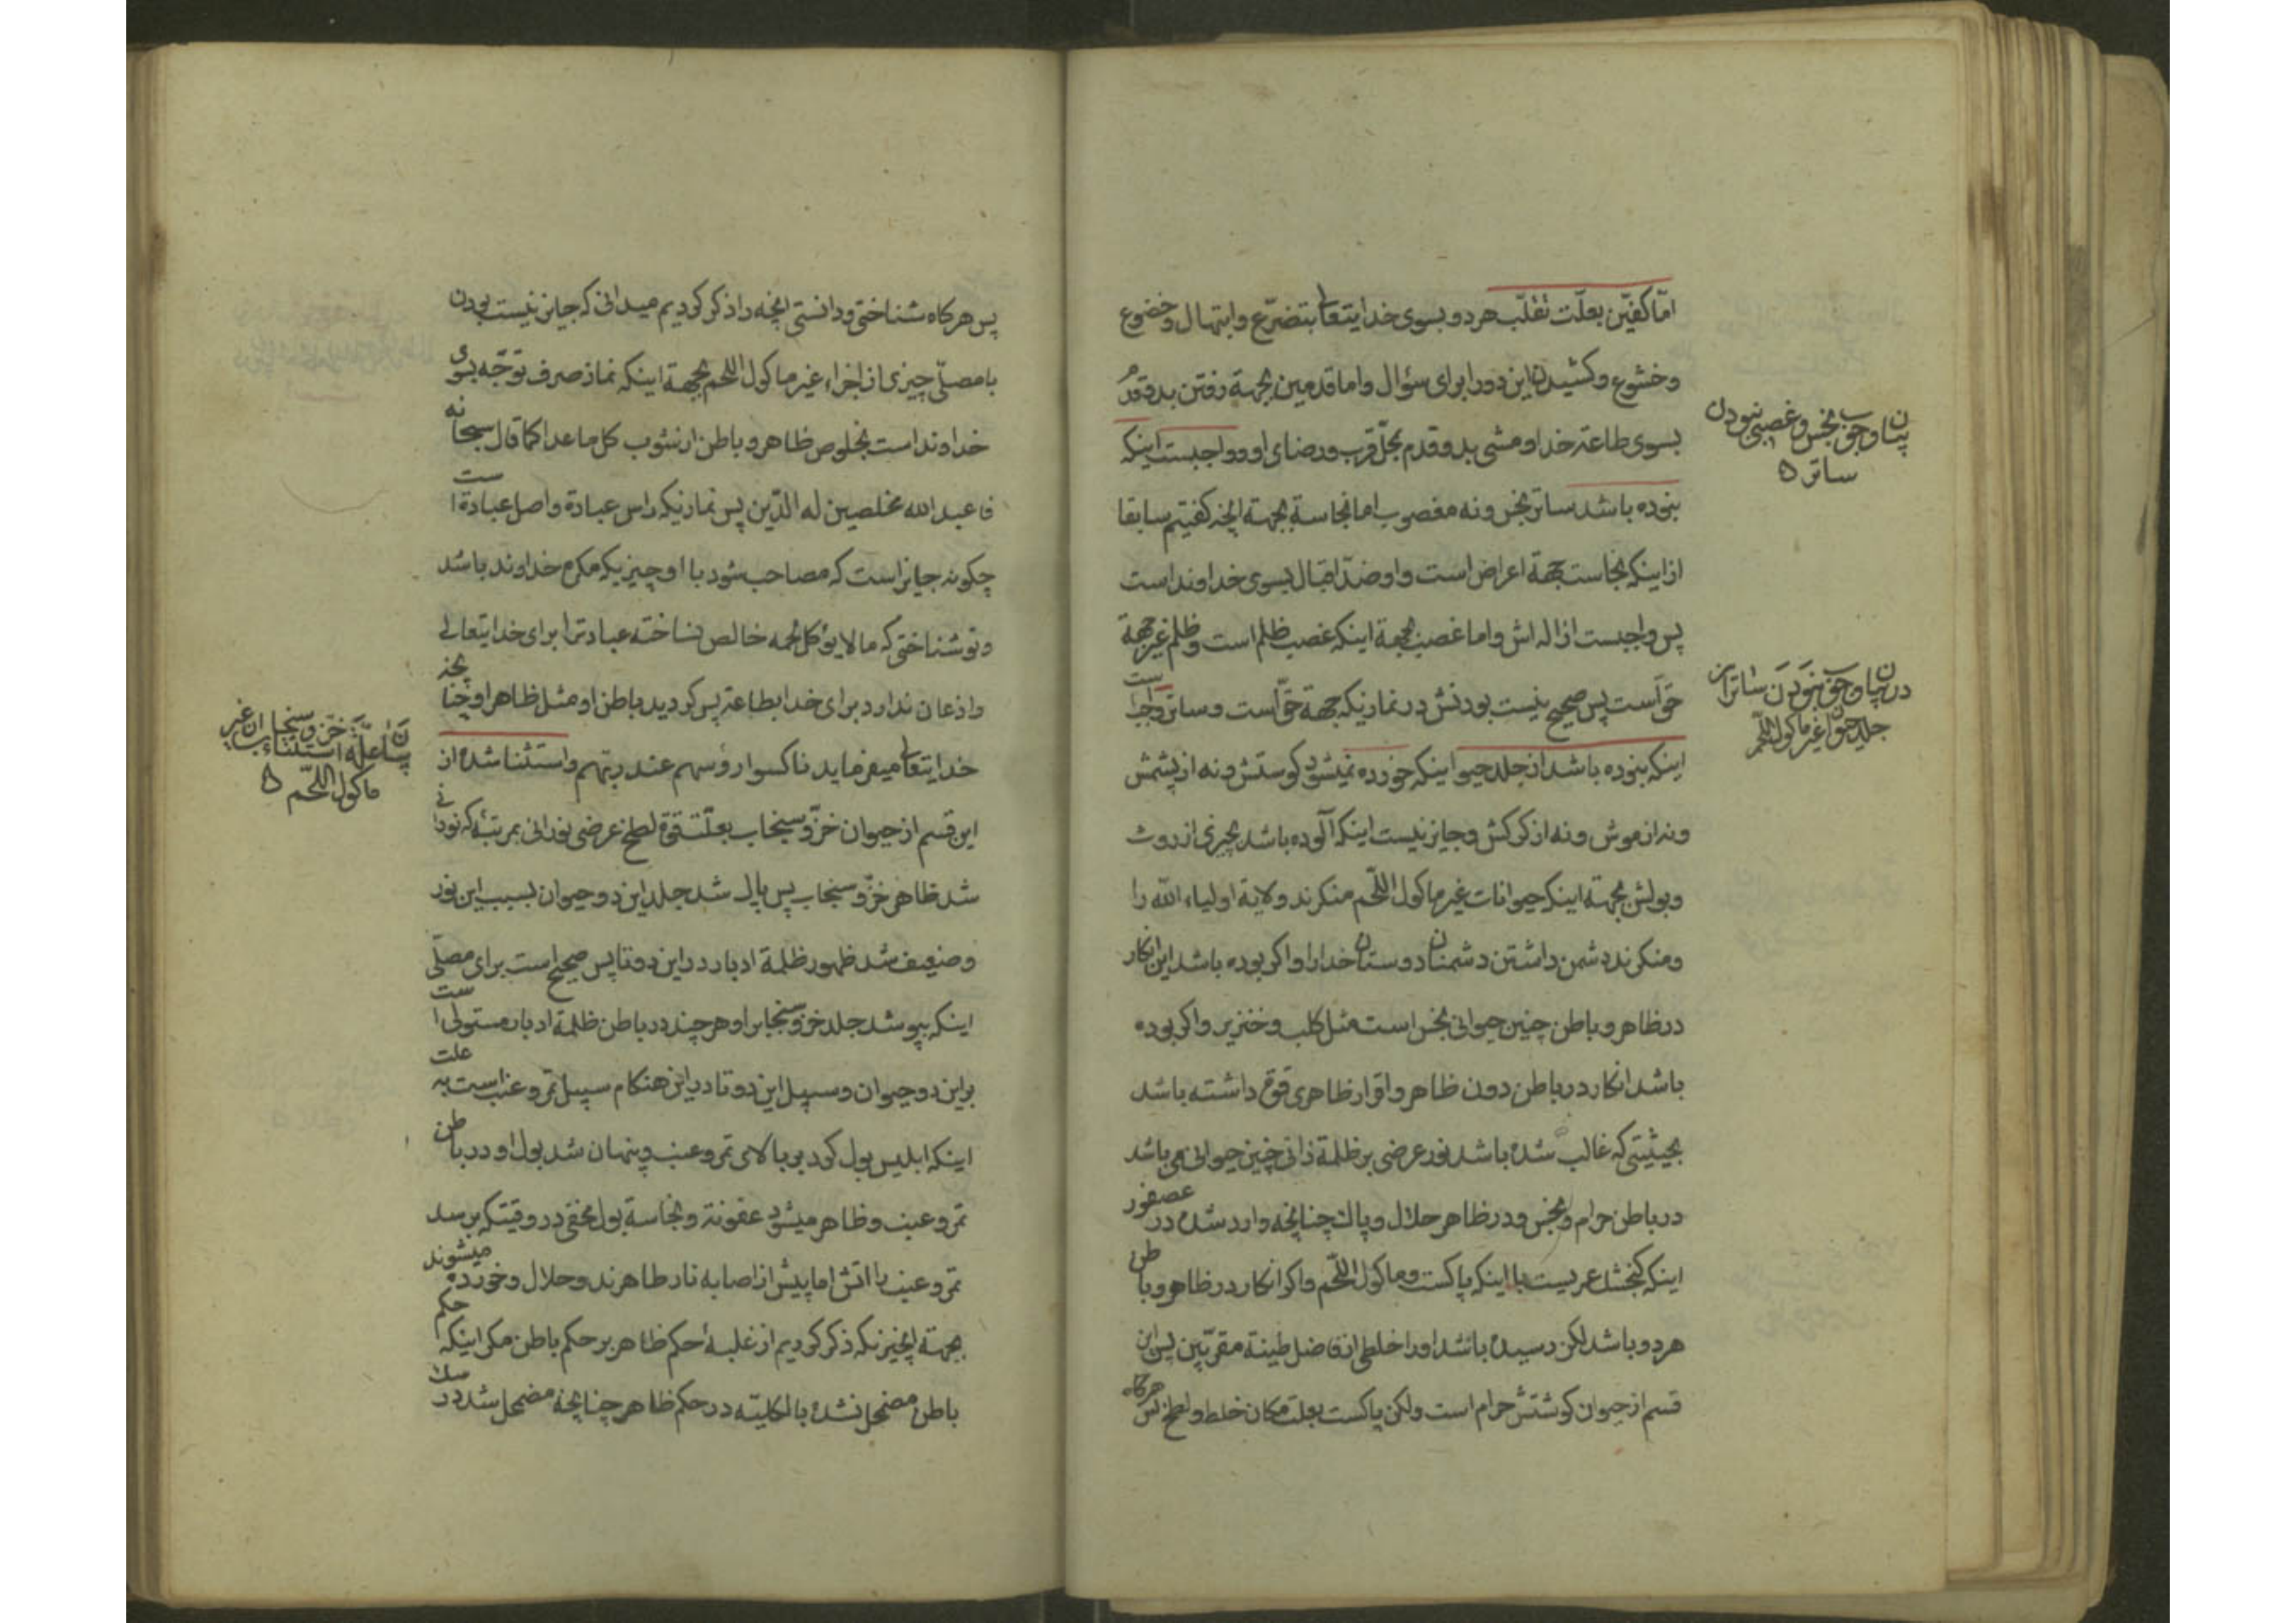 اما کفین بعلت تقلب هر دو بسوی خدایتعالی بتضرع وابتهال وخضوع
وخشوع وکشیدن این دو را برای سؤال واما قدمین بجهة رفتن بدو قدم
بسوی طاعة خدا ومشی بدو قدم بمحل قرب ورضای او وواجبست اینکه
بنوده باشد ساتر نجس ونه مغصوب اما نجاسة بجهة انچه کفتیم سابقا
از اینکه نجاست جهة اعراض است واو ضد اقبال بسوی خداوند است
پس واجبست ازاله اش واما غصب بجهة اینکه غصب ظلم است وظلم غیر جهة
حق است پس صحیح نیست بودنش در نمازیکه جهة حق است وساتر واجبست
اینکه بنوده باشد از جلد حیوانیکه خورده نمیشود کوشتش ونه از پشمش
ونه از موش ونه از کرکش وجایز نیست اینکه آلوده باشد بچیزی از روث
وبولش بجهته اینکه حیوانات غیر ماکول اللحم منکرند ولایة اولیاء الله را
ومنکرند دشمن داشتن دشمنان دوستان خدا را واکر بوده باشد این انکار
در ظاهر وباطن چنین حیوانی نجس است مثل کلب وخنزیر واکر بوده
باشد انکار در باطن دون ظاهر واقرار ظاهری قوة داشته باشد
بحیثیتی که غالب شده باشد نور عرضی بر ظلمة ذاتی چنین حیوانی می باشد
در باطن حرام ونجس ودر ظاهر حلال وپاک چنانچه وارد شده در عصفور
اینکه کنجشک عمریست با اینکه پاکست وماکول اللحم واکر انکار در ظاهر وباطن
هر دو باشد لکن رسیده باشد او را خلطی از فاضل طینة مقربین پس این
قسم از حیوان کوشتش حرام است ولکن پاکست بعلت مکان خلط ولطخ پس هرکاه
بیان وجوب نجس وغصبی نبودن
ساتر ۵
در بیان وجوب نبودن ساتر از
جلد حیوان غیر ماکول اللحم
پس هرکاه شناختی ودانستی انچه را ذکر کردیم میدانی که جایز نیست بودن
با مصلی چیزی از اجزاء غیر ماکول اللحم بجهة اینکه نماز صرف توجه بسوی
خداوند است بخلوص ظاهر وباطن از شوب کل ما عدا کما قال سبحانه
فاعبد الله مخلصین له الدین پس نمازیکه راس عبادة واصل عبادة است
چکونه جایز است که مصاحب شود با او چیزیکه مکرم خداوند باشد
وتو شناختی که ما لا یؤکل لحمه خالص نساخته عبادترا برای خدایتعالی
واذعان ندارد برای خدا بطاعة پس کردید باطن او مثل ظاهر او چنانچه
خدایتعالی میفرماید ناکسوا رؤسهم عند ربهم واستثنا شده از
این قسم از حیوان خز وسنجاب بعلت قوة لطخ عرضی نورانی بمرتبه که نورانی
شد ظاهر خز وسنجاب پس پاک شد جلد این دو حیوان بسبب این نور
وضعیف شد ظهور ظلمة ادبار در این دو تا پس صحیح است برای مصلی
اینکه بپوشد جلد خز وسنجاب را وهر چند در باطن ظلمة ادبار مستولی است
بر این دو حیوان وسبیل این دو تا در این هنکام سبیل تمر وعنب است به علت
اینکه ابلیس بول کرد بر بالای تمر وعنب وپنهان شد بول او در باطن
تمر وعنب وظاهر میشود عفونة ونجاسة بول مخفی در وقتیکه برسد
تمر وعنب را اتش اما پیش از اصابه نار طاهرند وحلال وخورده میشوند
بجهته انچیزیکه ذکر کردیم از غلبهٔ حکم ظاهر بر حکم باطن مکر اینکه حکم
باطن مضمحل نشده بالکلیته در حکم ظاهر چنانچه مضمحل شد در
بیان علة استثناء خز وسنجاب از غیر
ماکول اللحم ۵